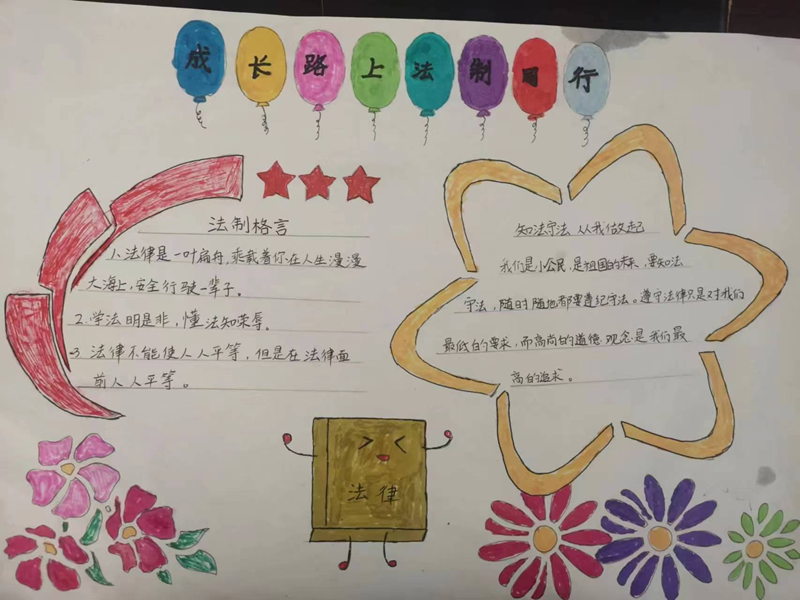 成长路上法制同行
法制格言
1、法律是一叶扁舟,乘载着你在人生漫漫
大海上,安全行驶一辈子。
2、学法明是非,懂法知荣辱。
3、法律不能使人人平等,但是在法律面
前人人平等。
知法守法 从我做起
我们是小公民,是祖国的未来,要知法
守法,随时随地都要遵纪守法。遵守法律只是对我们
最低的要求,而高尚的道德观念是我们最
高的追求。
法律